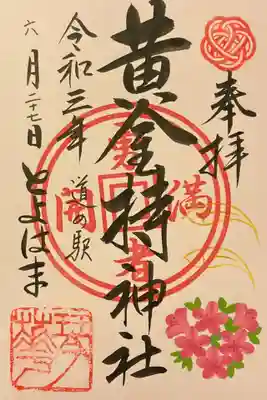 奉拝
黄金持神社
令和三年
道の駅
とよはま
六月二十七日
満
開